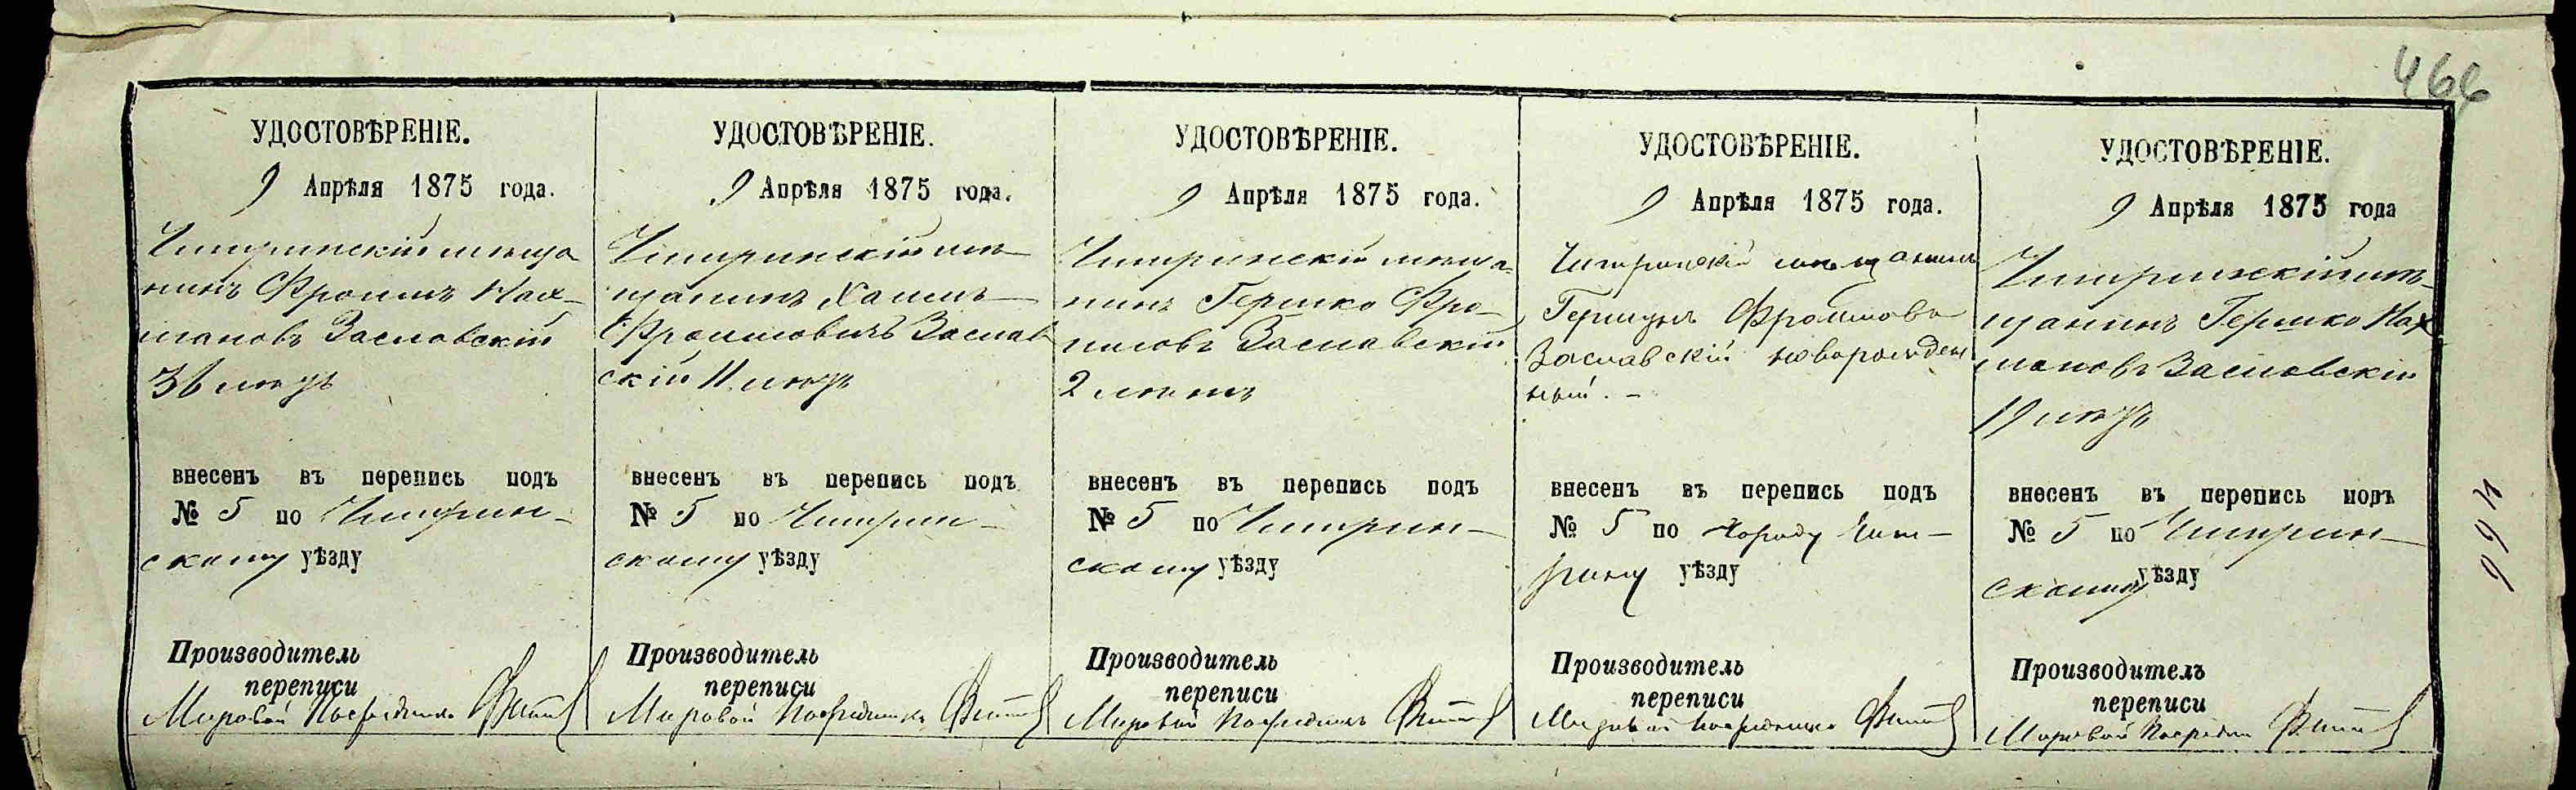 466
УДОСТОВѢРЕНІЕ.
9 Апрѣля 1875 года.
Чигиринскій мѣща
нинъ Фроимъ Нах-
мановъ Заславскій
36 лѣтъ
внесенъ въ перепись подъ
№ 5 по Чигирин-
скому уѣзду
Производитель
переписи
Мировой Посредникъ
УДОСТОВѢРЕНІЕ.
9 Апрѣля 1875 года.
Чигиринскій мѣ-
щанинъ Хаимъ
Фроимовичъ Заслав
скій 11 лѣтъ
внесенъ въ перепись подъ
№ 5 по Чигирин-
скому уѣзду
Производитель
переписи
Мировой Посредникъ
УДОСТОВѢРЕНІЕ.
9 Апрѣля 1875 года.
Чигиринскій мѣща-
нинъ Гершко Фро-
имовъ Заславскій
2 лѣтъ
внесенъ въ перепись подъ
№ 5 по Чигирин-
скому уѣзду
Производитель
переписи
Мировой Посредникъ
УДОСТОВѢРЕНІЕ.
9 Апрѣля 1875 года.
Чигиринскій мѣщанинъ
Фроимовъ
Заславскій новорожден
ный. -
внесенъ въ перепись подъ
№ 5 по городу Чиги-
рину уѣзду
Производитель
переписи
Мировой Посредникъ
УДОСТОВѢРЕНІЕ.
9 Апрѣля 1875 года
Чигиринскій мѣ-
щанинъ Гершко Нах
мановъ Заславскій
19 лѣтъ
внесенъ въ перепись подъ
№ 5 по Чигирин-
скому уѣзду
Производитель
переписи
Мировой Посредник
466